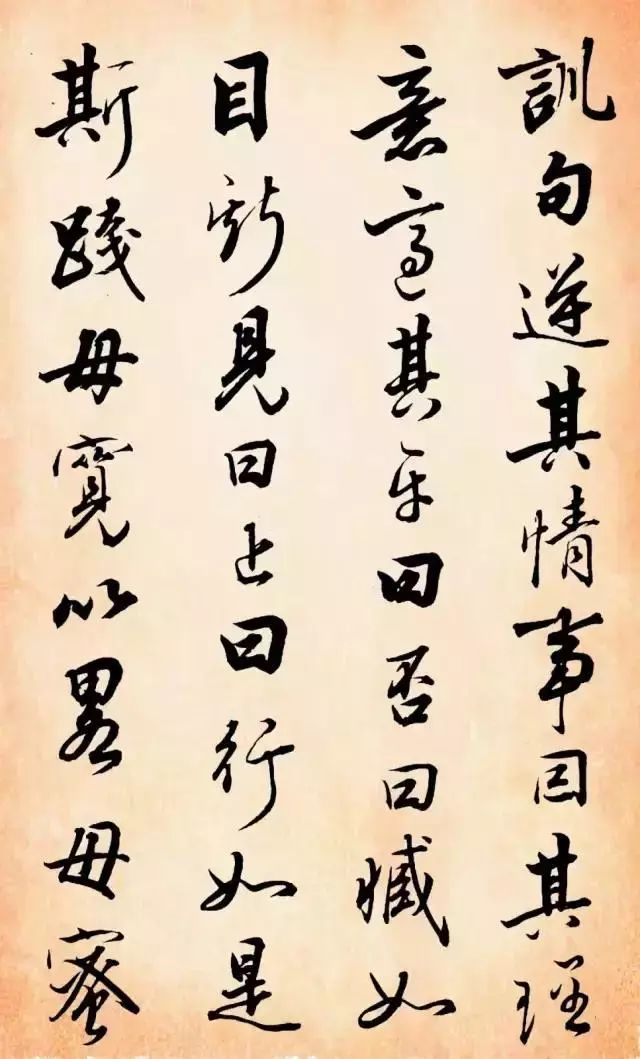 訓句逆其情事因其理
意適其平曰否曰臧如
目斯見曰止曰行如是
斯踐毋寬以畧毋蜜